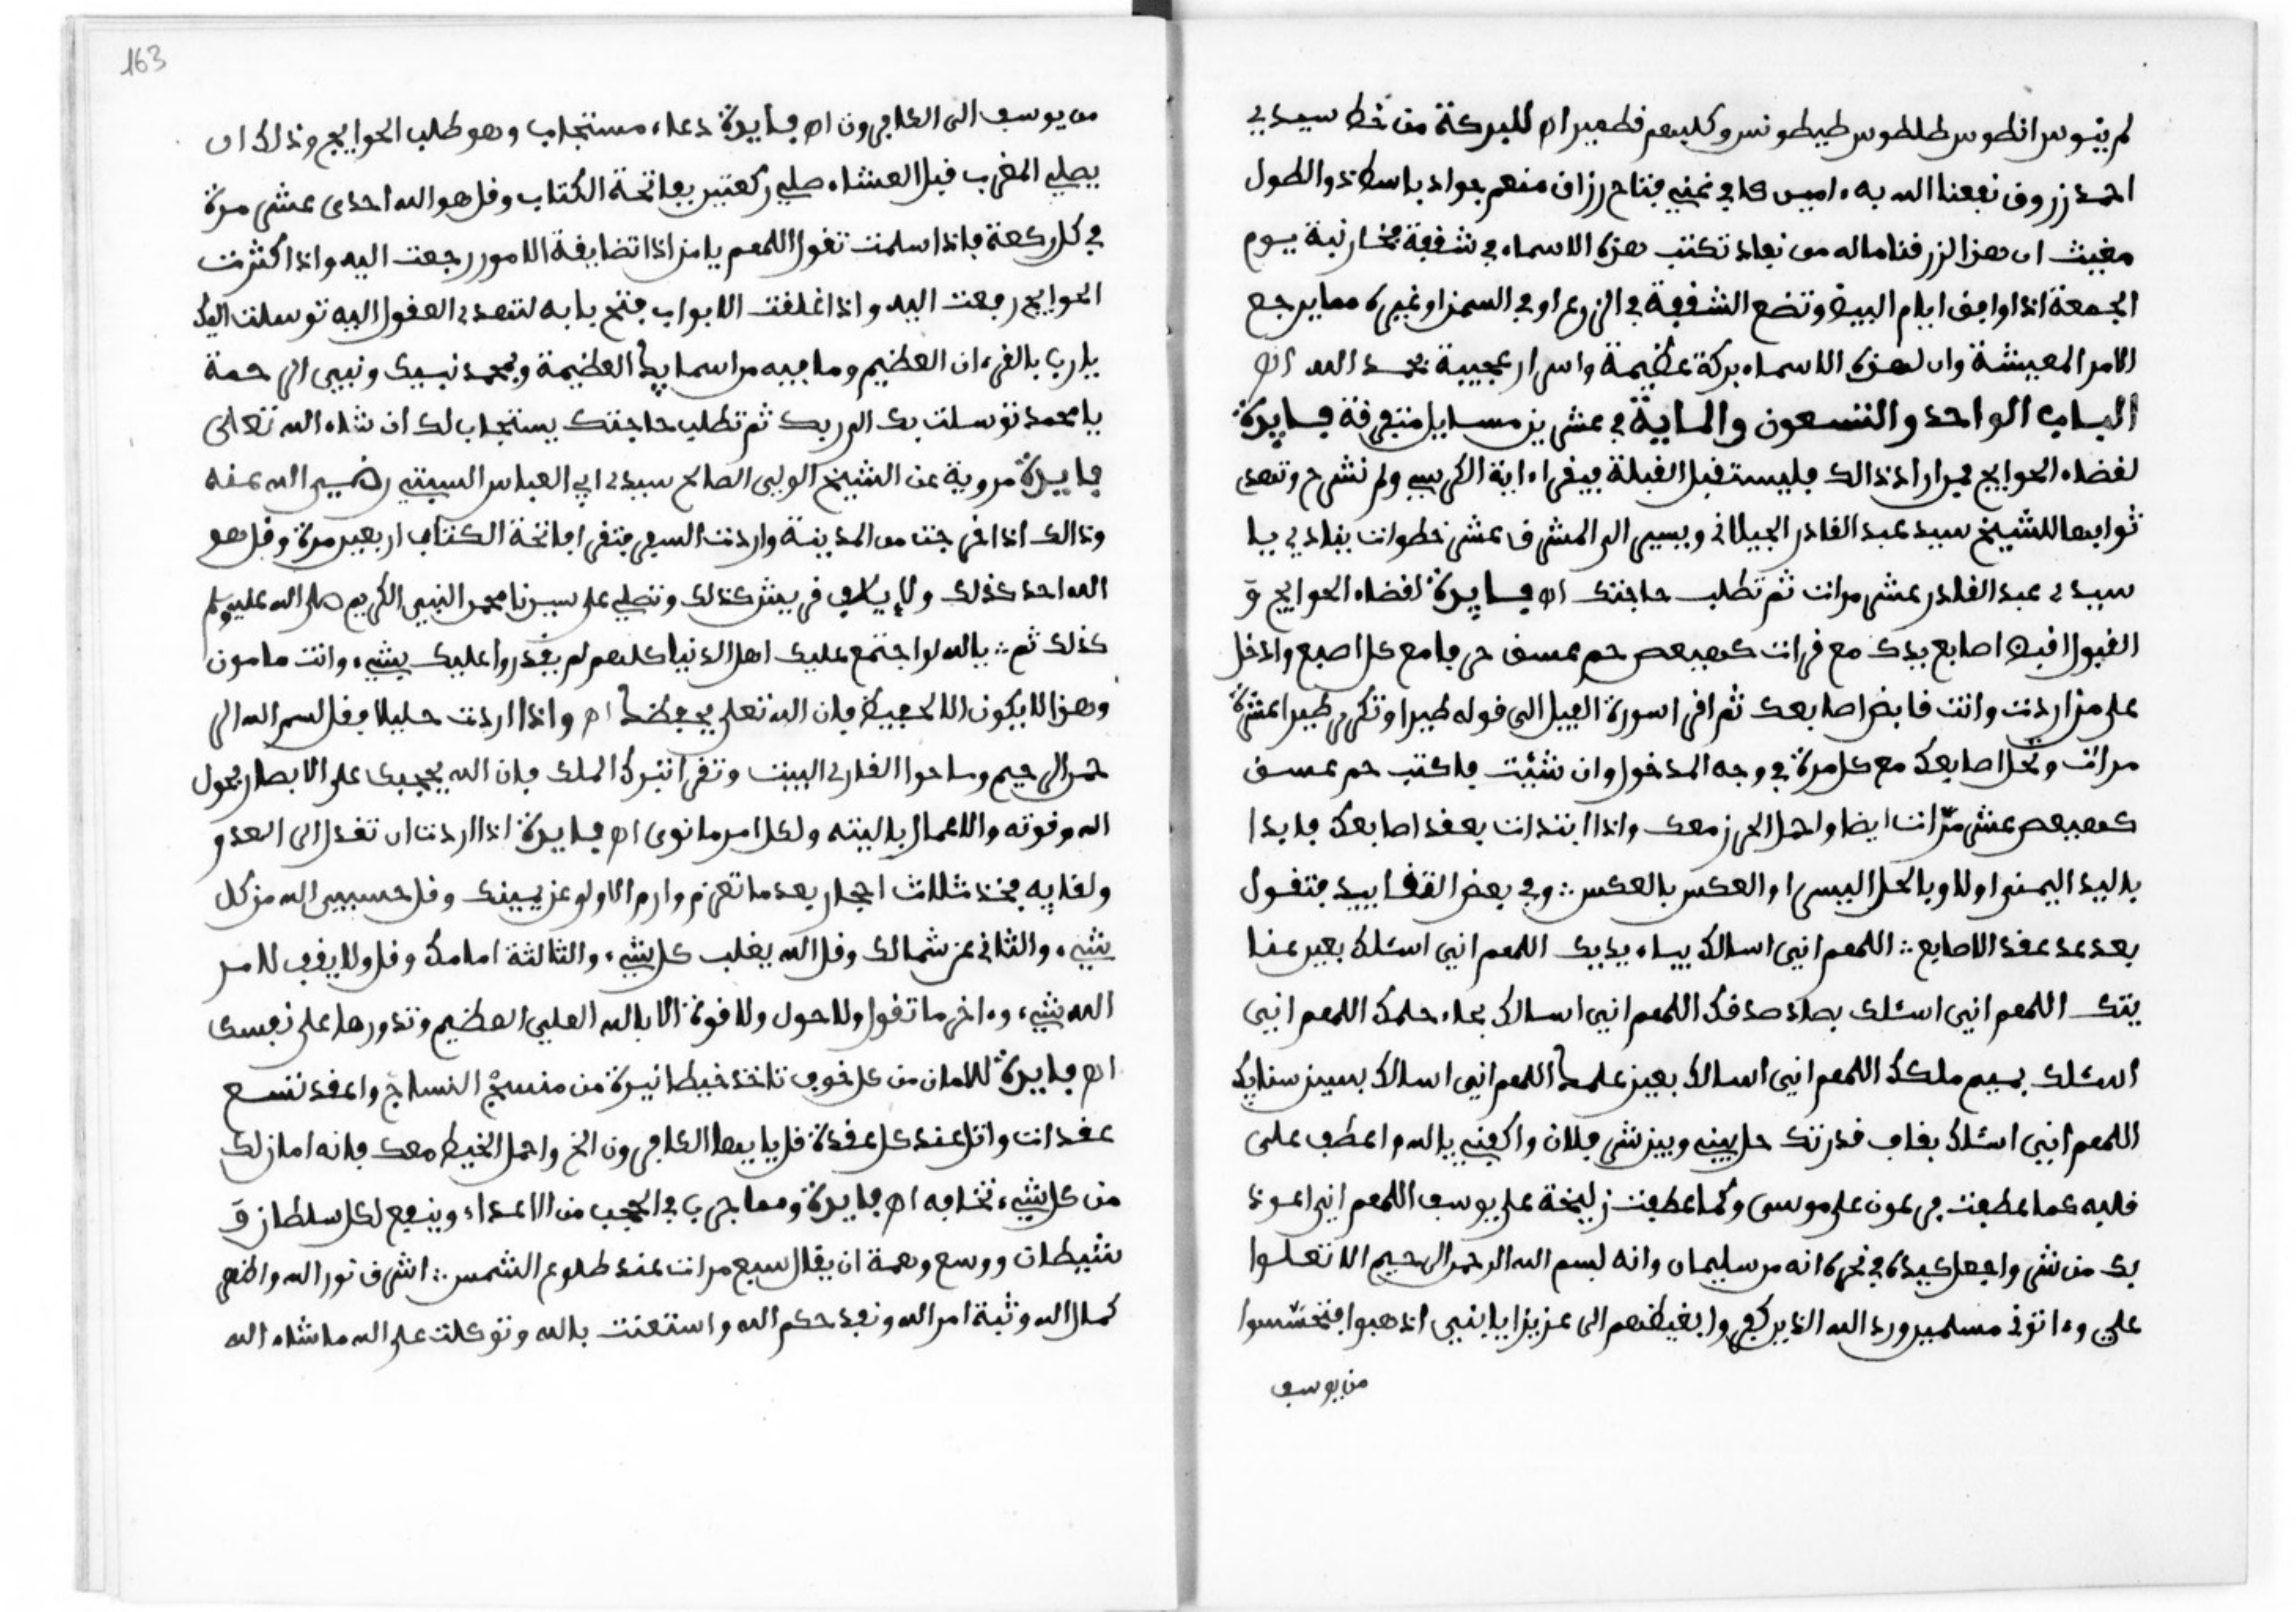 لم ينوس انطوس طلطوس طيطونس وكلبهم قطمير اه للبركة من خط سيدي
احمد زروق نفعنا الله به ءاميس كافي غني فتاح رزاق منعم جواد باسط ذو الطول
مغيث ان هذا لرزقنا ماله من نفاد تكتب هذه الاسماء في شقفة فخارنية يوم
الجمعة اذا وافق ايام البيض وتضع الشقفة في الزرع او في السمن او غيره مما يرجع
الامر المعيشة وان لهذه الاسماء بركة عظيمة واسرار عجيبة بحمد الله اه
الباب الواحد والتسعون والماية في عشرين مسايل متفرقة فايدة
لقضاء الحوايج فمن اراد ذالك فليستقبل القبلة فيقرا ءاية الكرسي ولم نشرح وتهدي
ثوابها للشيخ سيد عبد القادر الجيلاني ويسير الى المشرق عشر خطوات ينادي يا
سيدي عبد القادر عشر مرات ثم تطلب حاجتك اه فايدة لقضاء الحوايج و
القبول اقبض اصابع يدك مع قرات كهيعص حم عسق حرفا مع كل اصبع وادخل
على من اردت وانت قابض اصابعك ثم اقرا سورة الفيل الى قوله طيرا وتكرر طيرا عشرة
مرات وتحل اصابعك مع كل مرة في وجه المدخول وان شئت فاكتب حم عسق
كهيعص عشر مرات ايضا واحمل الحرز معك واذا ابتدات بعقد اصابعك فابدا
باليد اليمنى اولا وبالحل اليسرى او العكس بالعكس وفي بعض التقاييد فتقول
بعد عد عقد الاصابع اللهم اني اسالك بياء يديك اللهم اني اسئلك بعين عنا
يتك اللهم اني اسئلك بصاد صدقك اللهم اني اسالك بحاء حلمك اللهم اني
اسئلك بميم ملكك اللهم اني اسالك بعين علمك اللهم اني اسالك بسين سنايك
اللهم اني اسئلك بقاف قدرتك حل بيني وبين شر فلان واكفني يالله واعطف على
قلبه كما عطفت فرعون على موسى وكما عطفت زليخة على يوسف اللهم اني اعوذ
بك من شر واجعل كيده في نحره انه من سليمان وانه بسم الله الرحمن الرحيم الا تعلوا
علي وءاتوني مسلمين ورد الله الذين كفروا بغيظهم الى عزيزا يابني اذهبوا فتحسسوا
من يوسف
163
من يوسف الى الكافرون اه فايدة دعاء مستجاب وهو طلب الحوايج وذلك ان
يصلي المغرب قبل العشاء صلي ركعتين بفاتحة الكتاب وقل هو الله احدى عشر مرة
في كل ركعة فاذا سلمت تقول اللهم يا من اذا تضايقة الامور رجعت اليه واذا كثرت
الحوايج رفعت اليه واذا اغلقت الابواب فتح بابه لتهدي العقول اليه توسلت اليك
يا رب بالقرءان العظيم وما فيه من اسمايك العظيمة وبمحمد نبيك ونبي الرحمة
يا محمد توسلت بك الى ربك ثم تطلب حاجتك يستجاب لك ان شاء الله تعلى
فايدة مروية عن الشيخ الولي الصالح سيدي ابي العباس السبتي رضي الله عنه
وذالك اذا خرجت من المدينة واردت السفر فتقرا فاتحة الكتاب اربعين مرة وقل هو
الله احد كذلك ولايلاف قريش كذلك وتصلي على سيدنا محمد النبي الكريم صلى الله عليه وسلم
كذلك ثم بالله لو اجتمع عليك اهل الدنيا كلهم لم يقدروا عليك بشيء وانت مامون
وهذا لا يكون الا لحفيظ فان الله تعلى يحفظك اه واذا اردت حليلا فقل بسم الله الر
حمن الرحيم وساحوا الفار لي البيت وتقرا تبرك الملك فان الله يحجبك على الابصار بحول
الله وقوته والاعمال بالنيته ولكل امر ما نوى اه فايدة اذا اردت ان تقدل الى العدو
ولقايه فخذ ثلاث احجار بعد ما تعزم وارم الاولو عن يمينك وقل حسبي الله من كل
شيء والثاني عن شمالك وقل الله يغلب كل شيء والثالثة امامك وقل ولا يقف لامر
الله شيء وءاخر ما تقول ولا حول ولا قوة الا بالله العلي العظيم وتدورها على نفسك
اه فايدة للامان من كل خوف تاخذ خيط نيرة من منسج النساج واعقد تسع
عقدات واتل عند كل عقدة قل يا يها الكافرون الخ واحمل الخيط معك فانه امان لك
من كل شيء تخافه اه فايدة ومما جرب في الحجب من الاعداء وينفع لكل سلطان و
شيطان ووسع وهمة ان يقال سبع مرات عند طلوع الشمس اشرق نور الله واظهر
كمال الله وثبة امر الله ونفذ حكم الله واستعنت بالله وتوكلت على الله ما شاء الله